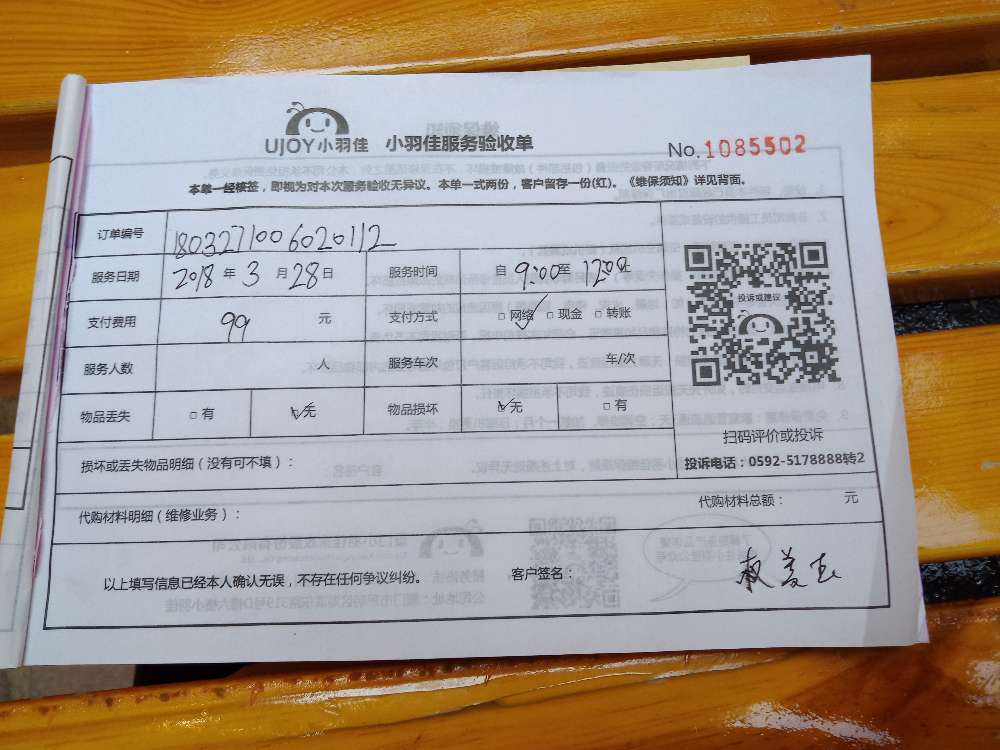 UJOY小羽佳 小羽佳服务验收单
No.1085502
本单一经核签，即视为对本次服务验收无异议。本单一式两份，客户留存一份(红)。《维保须知》详见背面。
订单编号 180327100602011​2
服务日期 2018 年 3 月 28 日 服务时间 自 9:00 至 12:00 止
投诉或建议
支付费用 99 元 支付方式 □ 网络 □ 现金 □ 转账
服务人数 人 服务车次 车/次
物品丢失 □ 有 □ 无 物品损坏 □ 无 □ 有
扫码评价或投诉
投诉电话：0592-5178888转2
损坏或丢失物品明细（没有可不填）：
代购材料明细（维修业务）： 代购材料总额： 元
以上填写信息已经本人确认无误，不存在任何争议纠纷。 客户签名：